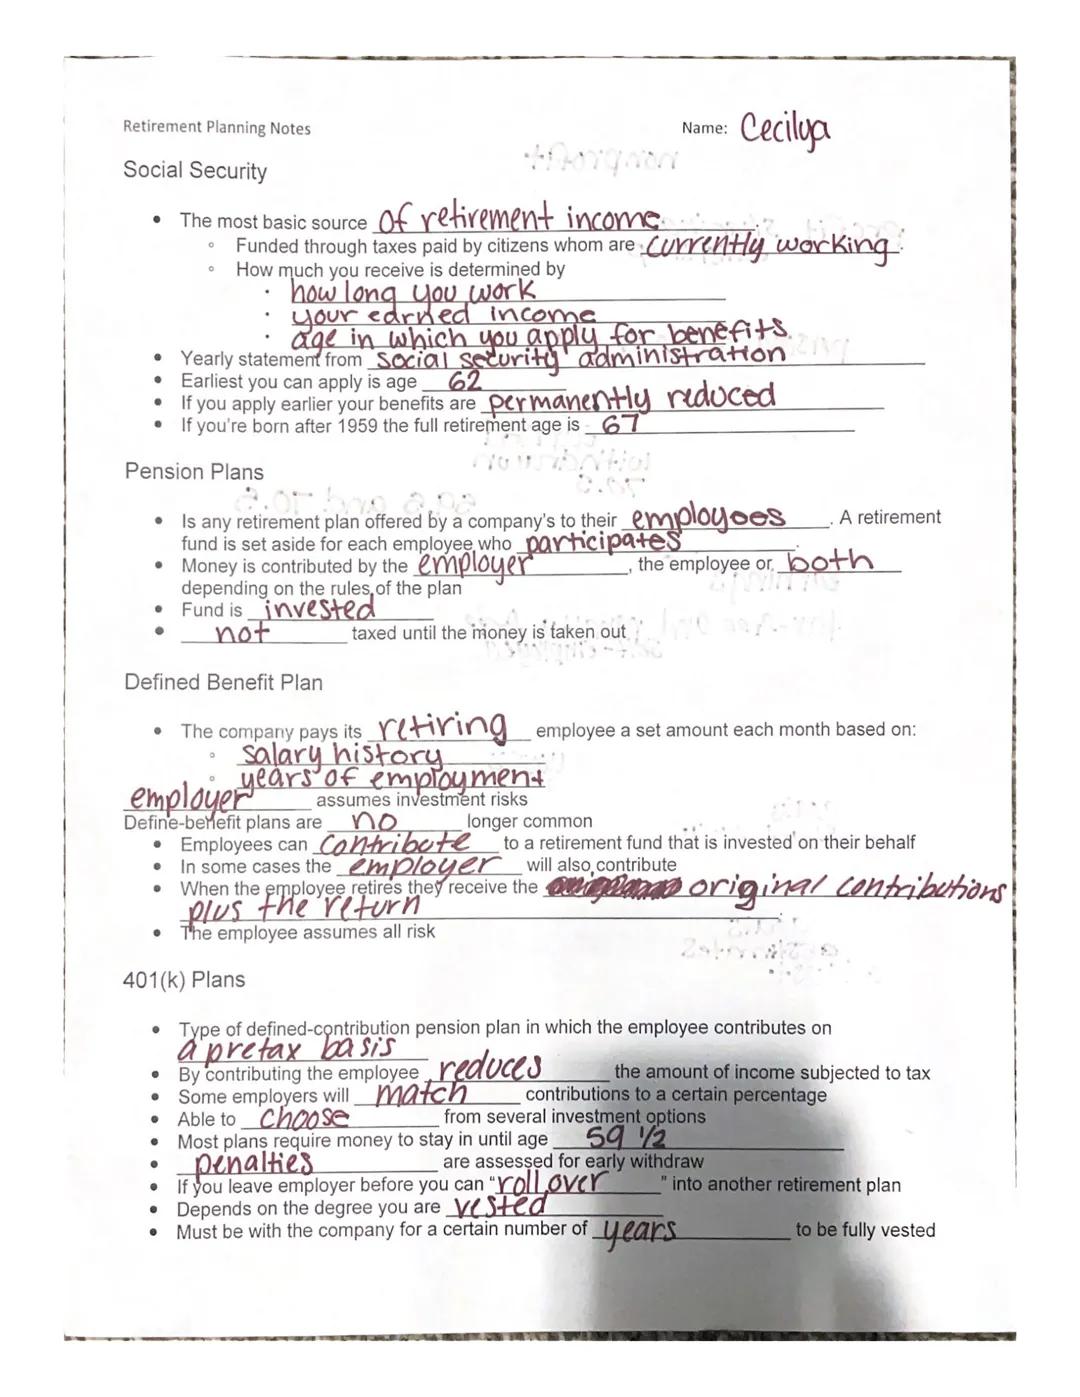 Retirement Planning Notes Name: Cecilya
Social Security
• The most basic source of retirement income.
◦ Funded through taxes paid by citizens whom are currently working.
◦ How much you receive is determined by
▪ how long you work
▪ your earned income
▪ age in which you apply for benefits
• Yearly statement from social security administration
• Earliest you can apply is age 62
• If you apply earlier your benefits are permanently reduced
• If you're born after 1959 the full retirement age is 67
Pension Plans
• Is any retirement plan offered by a company's to their employees. A retirement
fund is set aside for each employee who participates.
• Money is contributed by the employer, the employee or both
depending on the rules of the plan
• Fund is invested
• not taxed until the money is taken out
Defined Benefit Plan
• The company pays its retiring employee a set amount each month based on:
◦ salary history
◦ years of employment
employer assumes investment risks
Define-benefit plans are no longer common
• Employees can contribute to a retirement fund that is invested on their behalf
• In some cases the employer will also contribute
• When the employee retires they receive the original contributions
plus the return.
• The employee assumes all risk
401(k) Plans
• Type of defined-contribution pension plan in which the employee contributes on
a pretax basis
• By contributing the employee reduces the amount of income subjected to tax
• Some employers will match contributions to a certain percentage
• Able to choose from several investment options
• Most plans require money to stay in until age 59 1/2
• penalties are assessed for early withdraw
• If you leave employer before you can "roll over" into another retirement plan
• Depends on the degree you are vested
• Must be with the company for a certain number of years to be fully vested